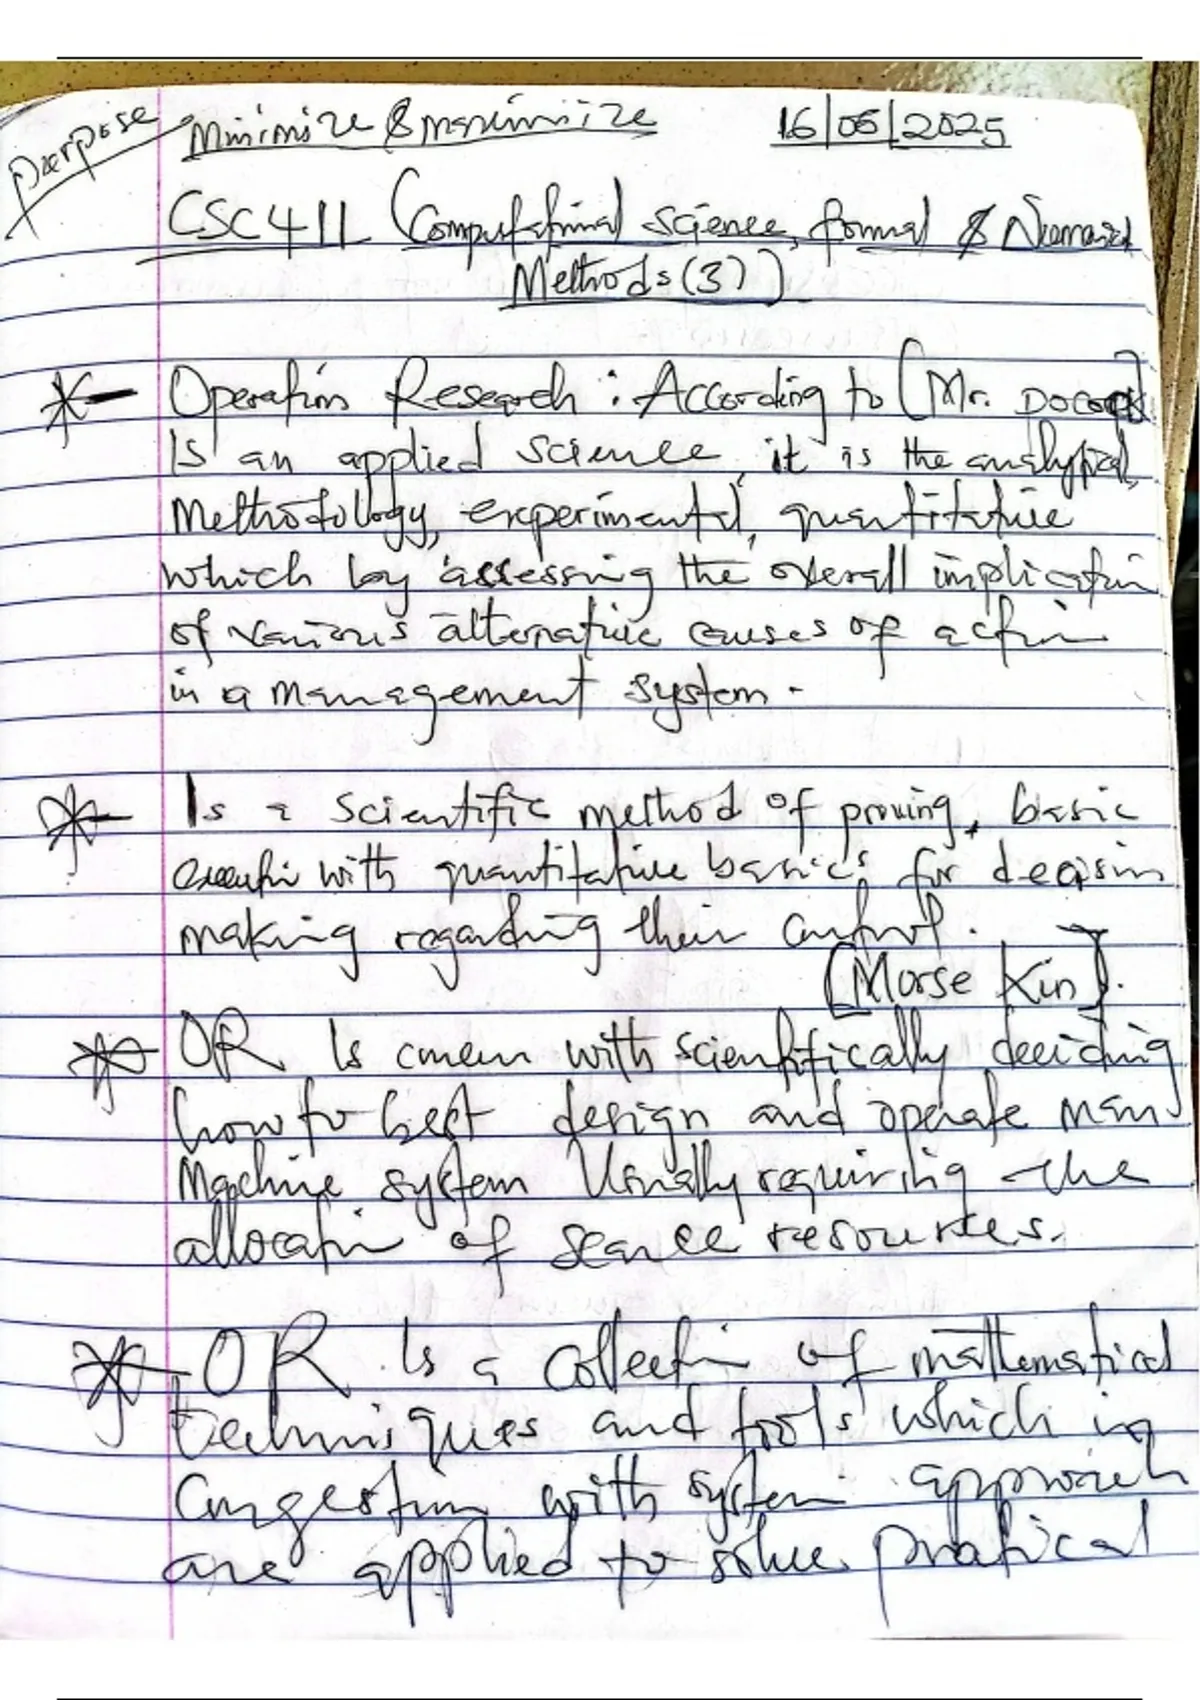 purpose Minimize & maximize 16/06/2025
CSC 411 (Computational science, formal & Numerical
Methods (3))
Operation Research : According to [Mr. Pocock]
Is an applied science, it is the analytical,
Methodology, experimental, quantitative
which by assessing the overall implication
of various alternative causes of action
in a management system.
Is a scientific method of proving, basic
with quantitative basics for decision
making regarding their control.
[Morse Kin].
OR Is with scientifically deciding
how to best design and operate man
Machine system Usually requiring the
allocation of scarce resources.
OR Is a collection of mathematical
techniques and tools which in
Congestion with system approach
are applied to solve pratical